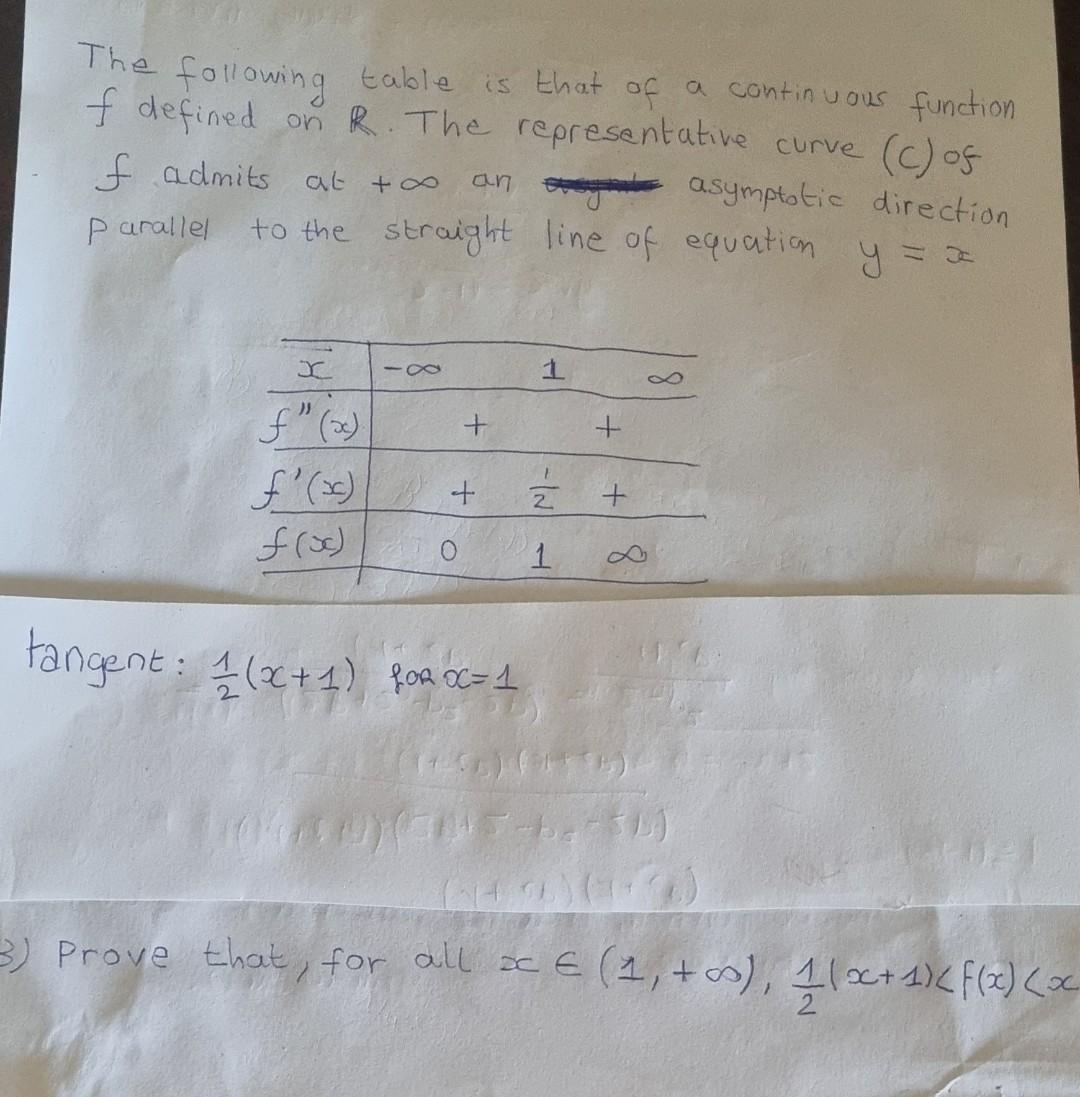 The following table is that of a continuous function
f defined on R. The representative curve (C) of
f admits at +∞ an asymptotic direction
parallel to the straight line of equation y = x
x -∞ 1 ∞
f''(x) + +
f'(x) + 1/2 +
f(x) 0 1 ∞
tangent: 1/2 (x+1) for x=1
3) Prove that, for all x ∈ (1, +∞), 1/2 (x+1) < f(x) < x